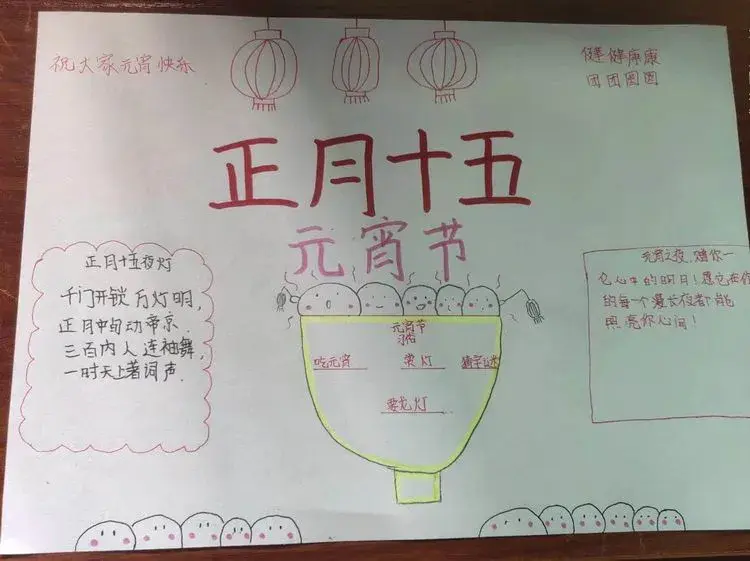 祝大家元宵快乐
健健康康
团团圆圆
正月十五
元宵节
正月十五夜灯
千门开锁万灯明,
正月中旬动帝京.
三百内人连袖舞,
一时天上著词声.
元宵节
习俗
吃元宵 赏灯 猜字谜
耍龙灯
元宵之夜,赠你一
心中的明月!愿它在你
的每个漫长夜都能
照亮你心间!